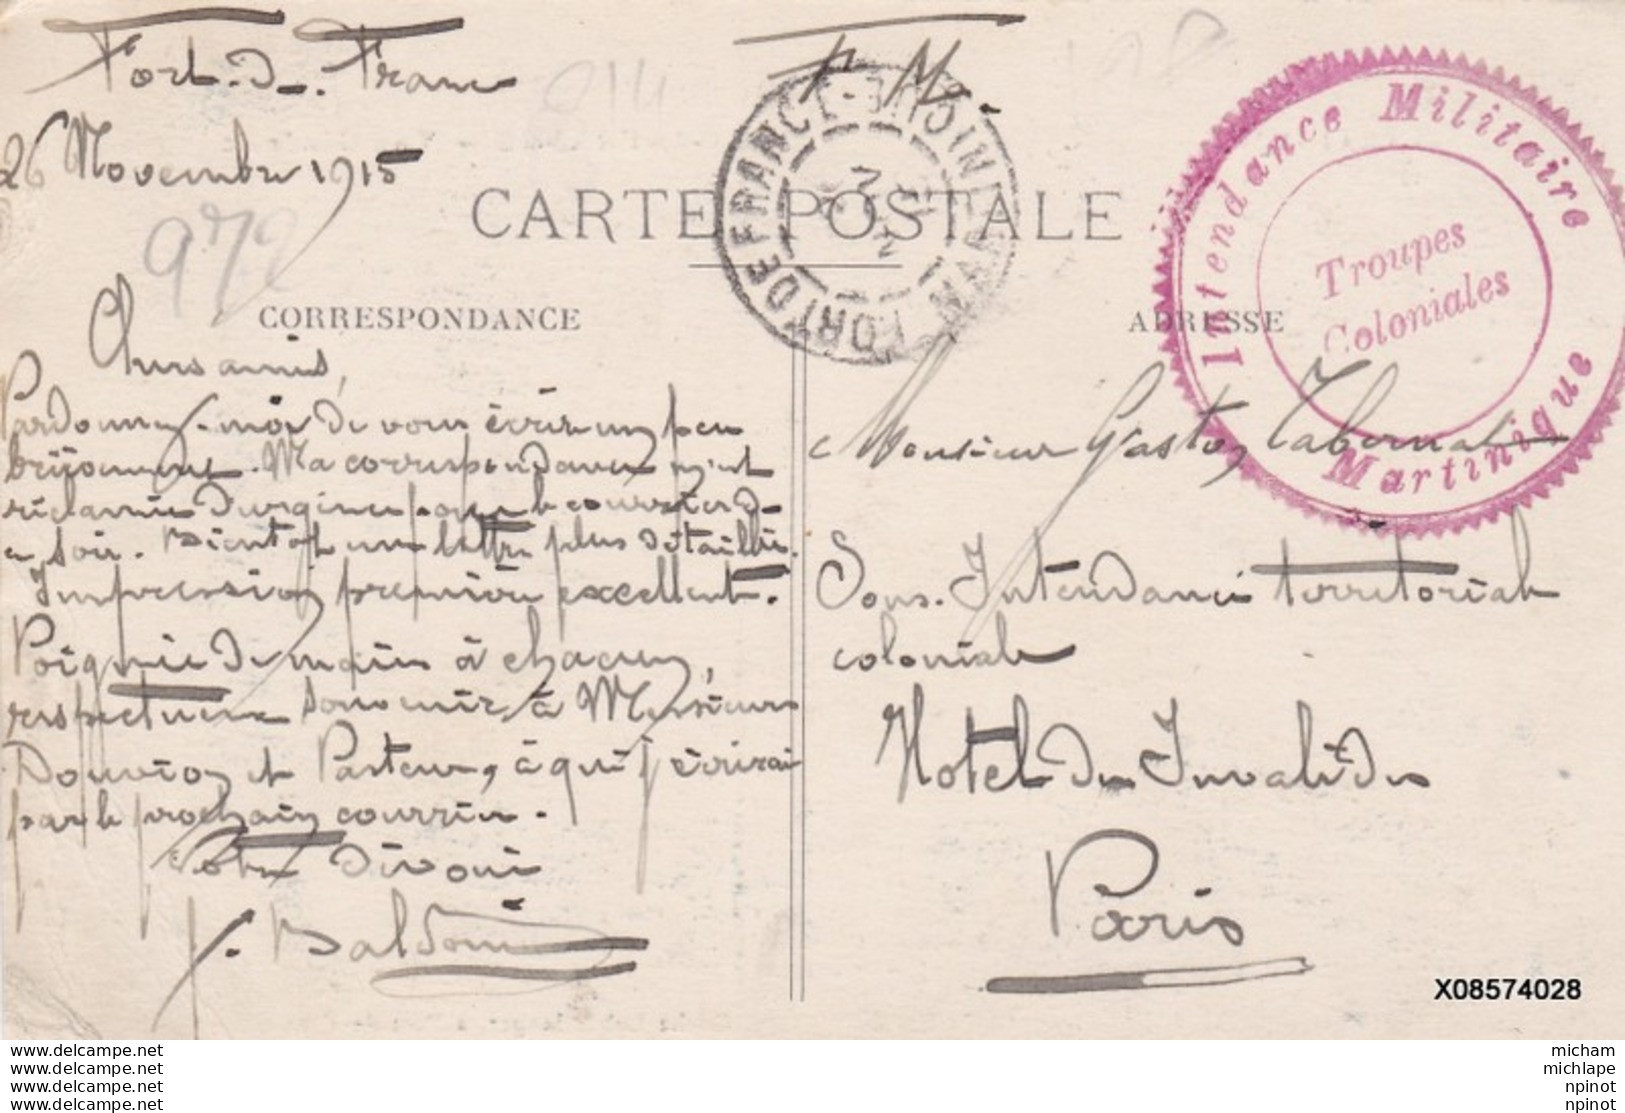 Fort-de-France
26 Novembre 1915
F. M.
972
CARTE POSTALE
FORT DE FRANCE - MARTINIQUE
Intendance Militaire
Troupes
Coloniales
Martinique
CORRESPONDANCE
Chers amis,
Pardonnez-moi de vous écrire un peu
brièvement. Ma correspondance m'est
réclamée d'urgence pour le courrier de
ce soir. Bientôt une lettre plus détaillée.
Impression première excellente.
Poignée de main à chacun,
respectueux souvenir à Messieurs
Douvion et Pasteur, à qui j'écrirai
par le prochain courrier.
Votre dévoué
J. Baldoui
ADRESSE
Monsieur Gaston Tabernat
Sous-Intendance territoriale
coloniale
Hotel des Invalides
Paris
X08574028
www.delcampe.net micham
www.delcampe.net michlape
www.delcampe.net npinot
www.delcampe.net npinot